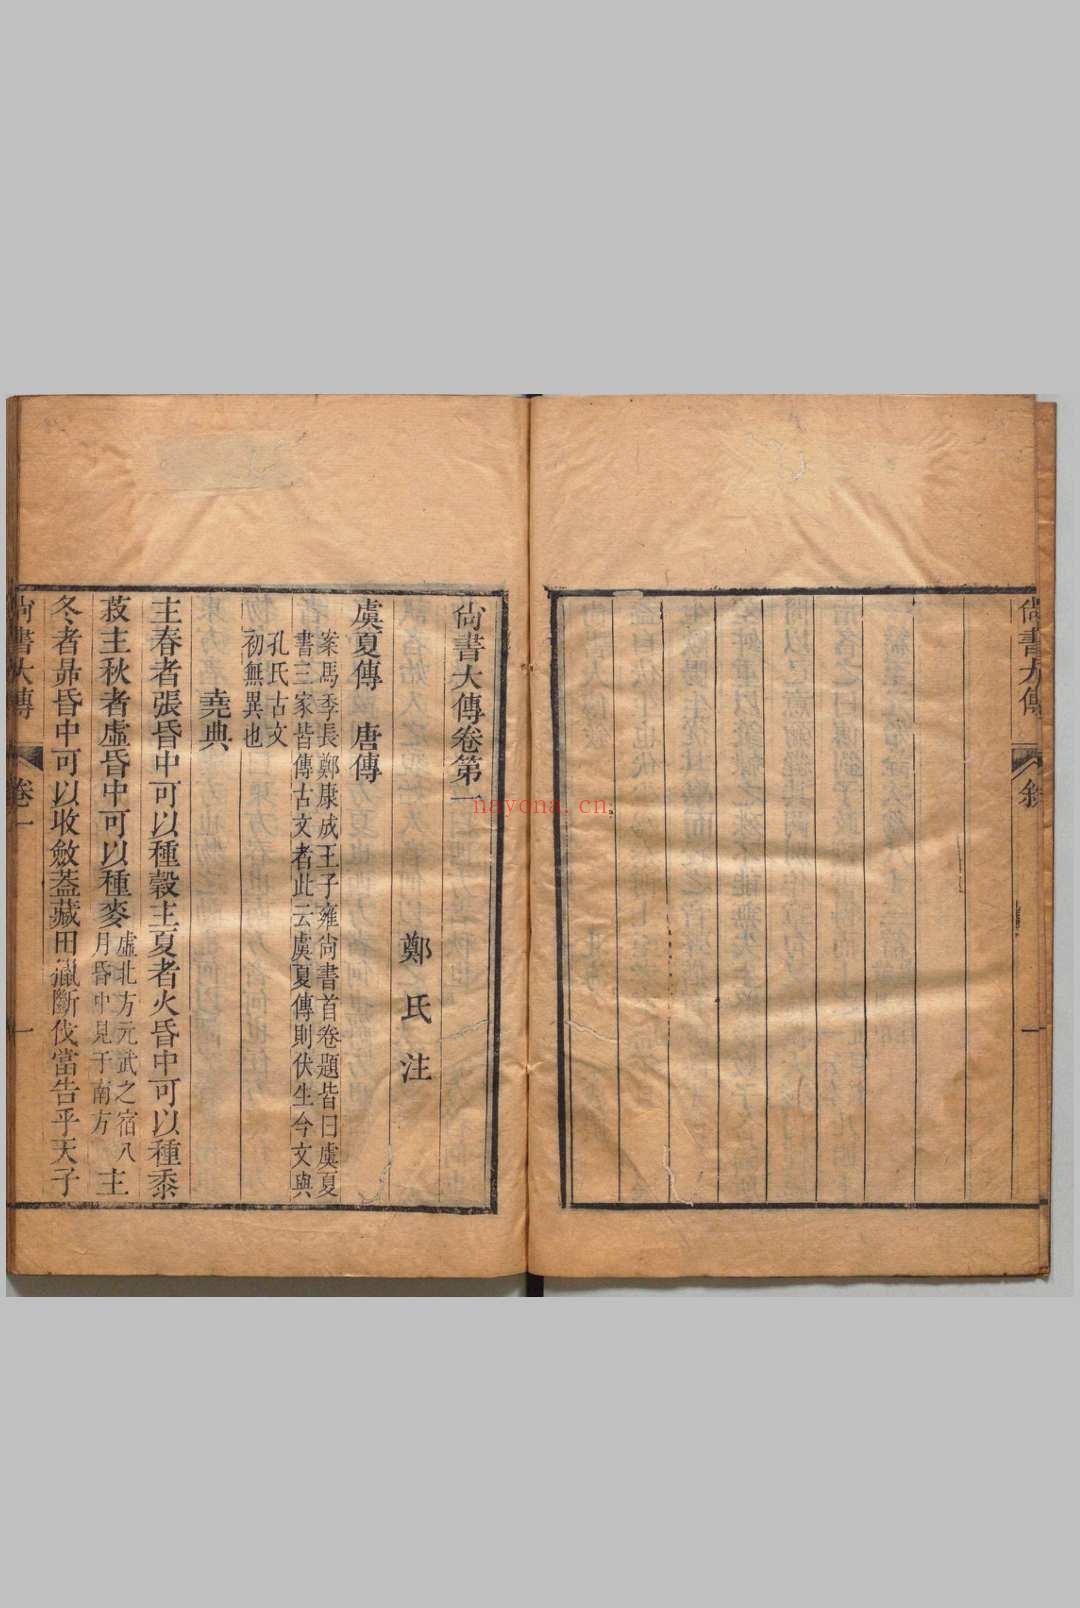 尚書大傳
叙
一
尚書大傳卷第一
鄭氏注
虞夏傳 唐傳
案馬季長鄭康成王子雍尚書首卷題皆曰虞夏
書三家皆傳古文者此云虞夏傳則伏生今文與
孔氏古文
初無異也
堯典
主春者張昏中可以種穀主夏者火昏中可以種黍
菽主秋者虛昏中可以種麥
虛北方元武之宿八
月昏中見于南方
主
冬者昴昏中可以收斂蓋藏田獵斷伐當告乎天子
尚書大傳
卷一
一
nayona.cn